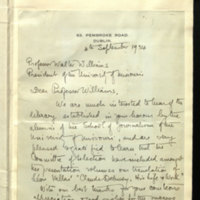 62, PEMBROKE ROAD.
DUBLIN.
6th September 1934
Professor Walter Williams
President of the University of Missouri
Dear Professor Williams,
We are much interested to hear of the
library established in your honour by the
alumni of the School of Journalism of the
University of Missouri, and are very
pleased indeed to learn that the
Committee of Selection have included amongst
the presentation volumes our translation of
Léon Vallas' "Claude Debussy, His Life & Works"
With our best thanks for your courteous